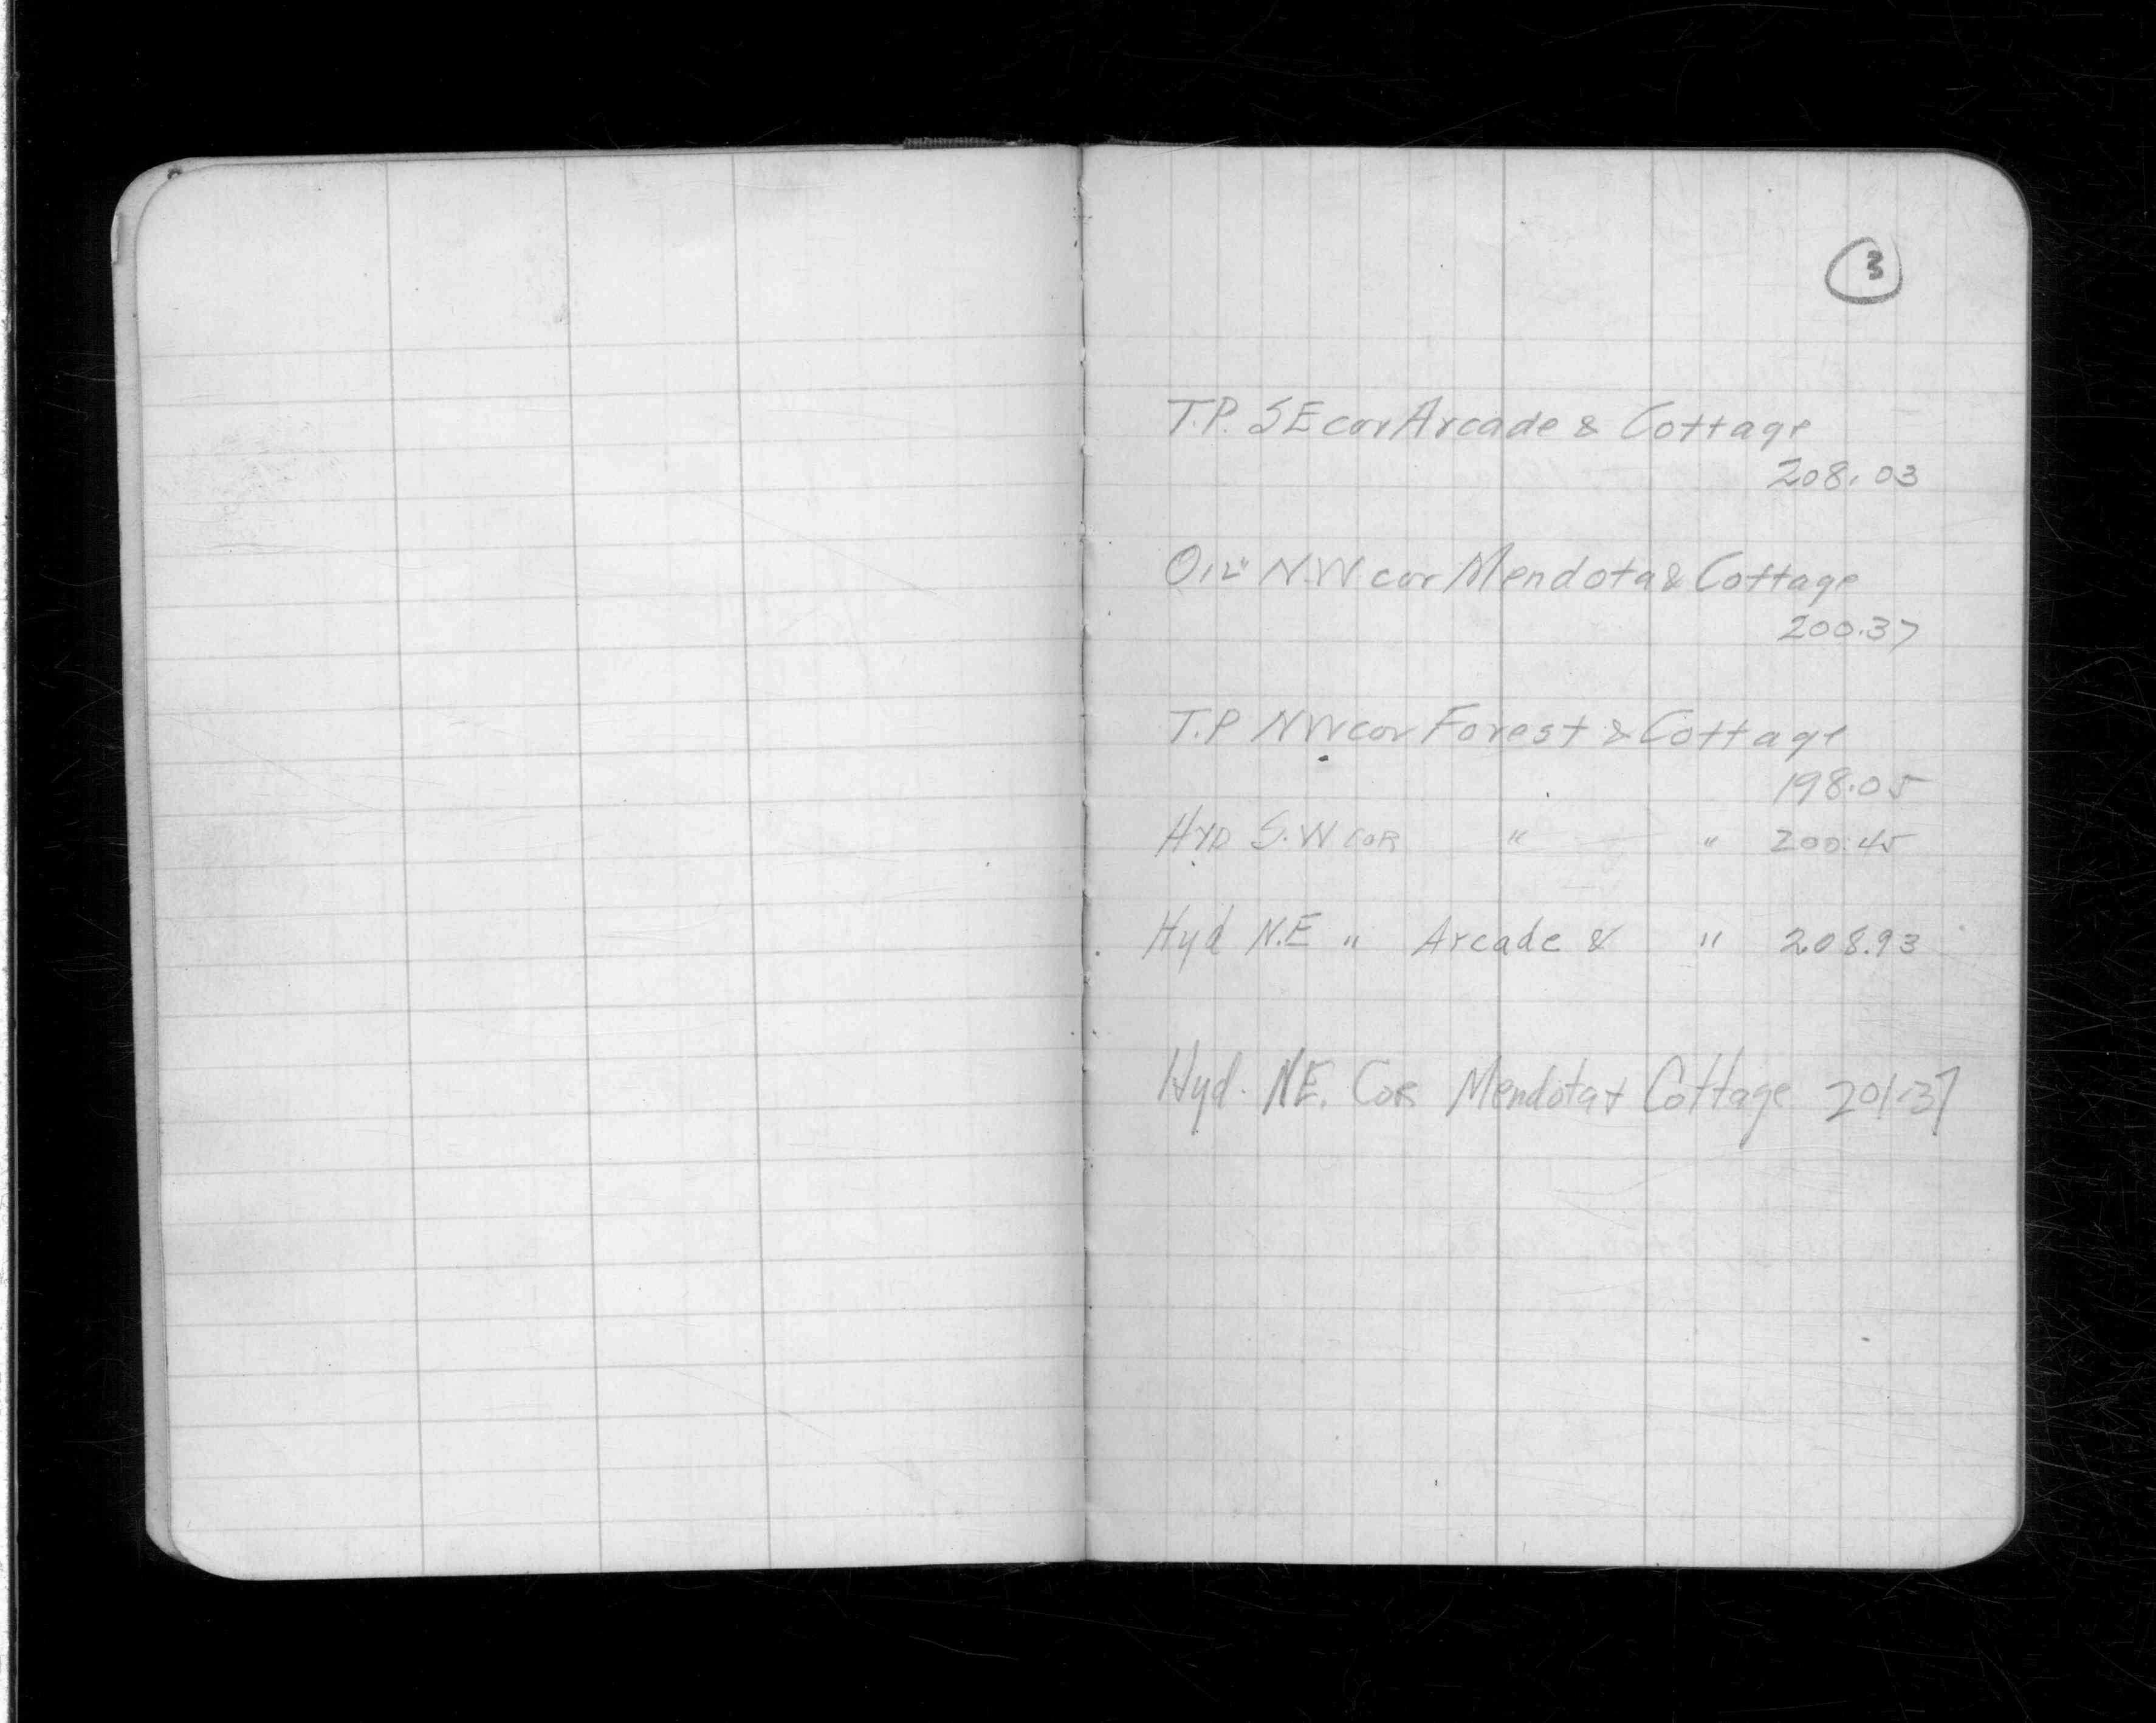 3
T.P. SE cor Arcade & Cottage
208.03
O 12" N.W. cor Mendota & Cottage
200.37
T.P NW cor Forest & Cottage
198.05
HYD S.W COR " " 200.45
Hyd N.E " Arcade & " 208.93
Hyd. NE. Cor Mendota + Cottage 201.37